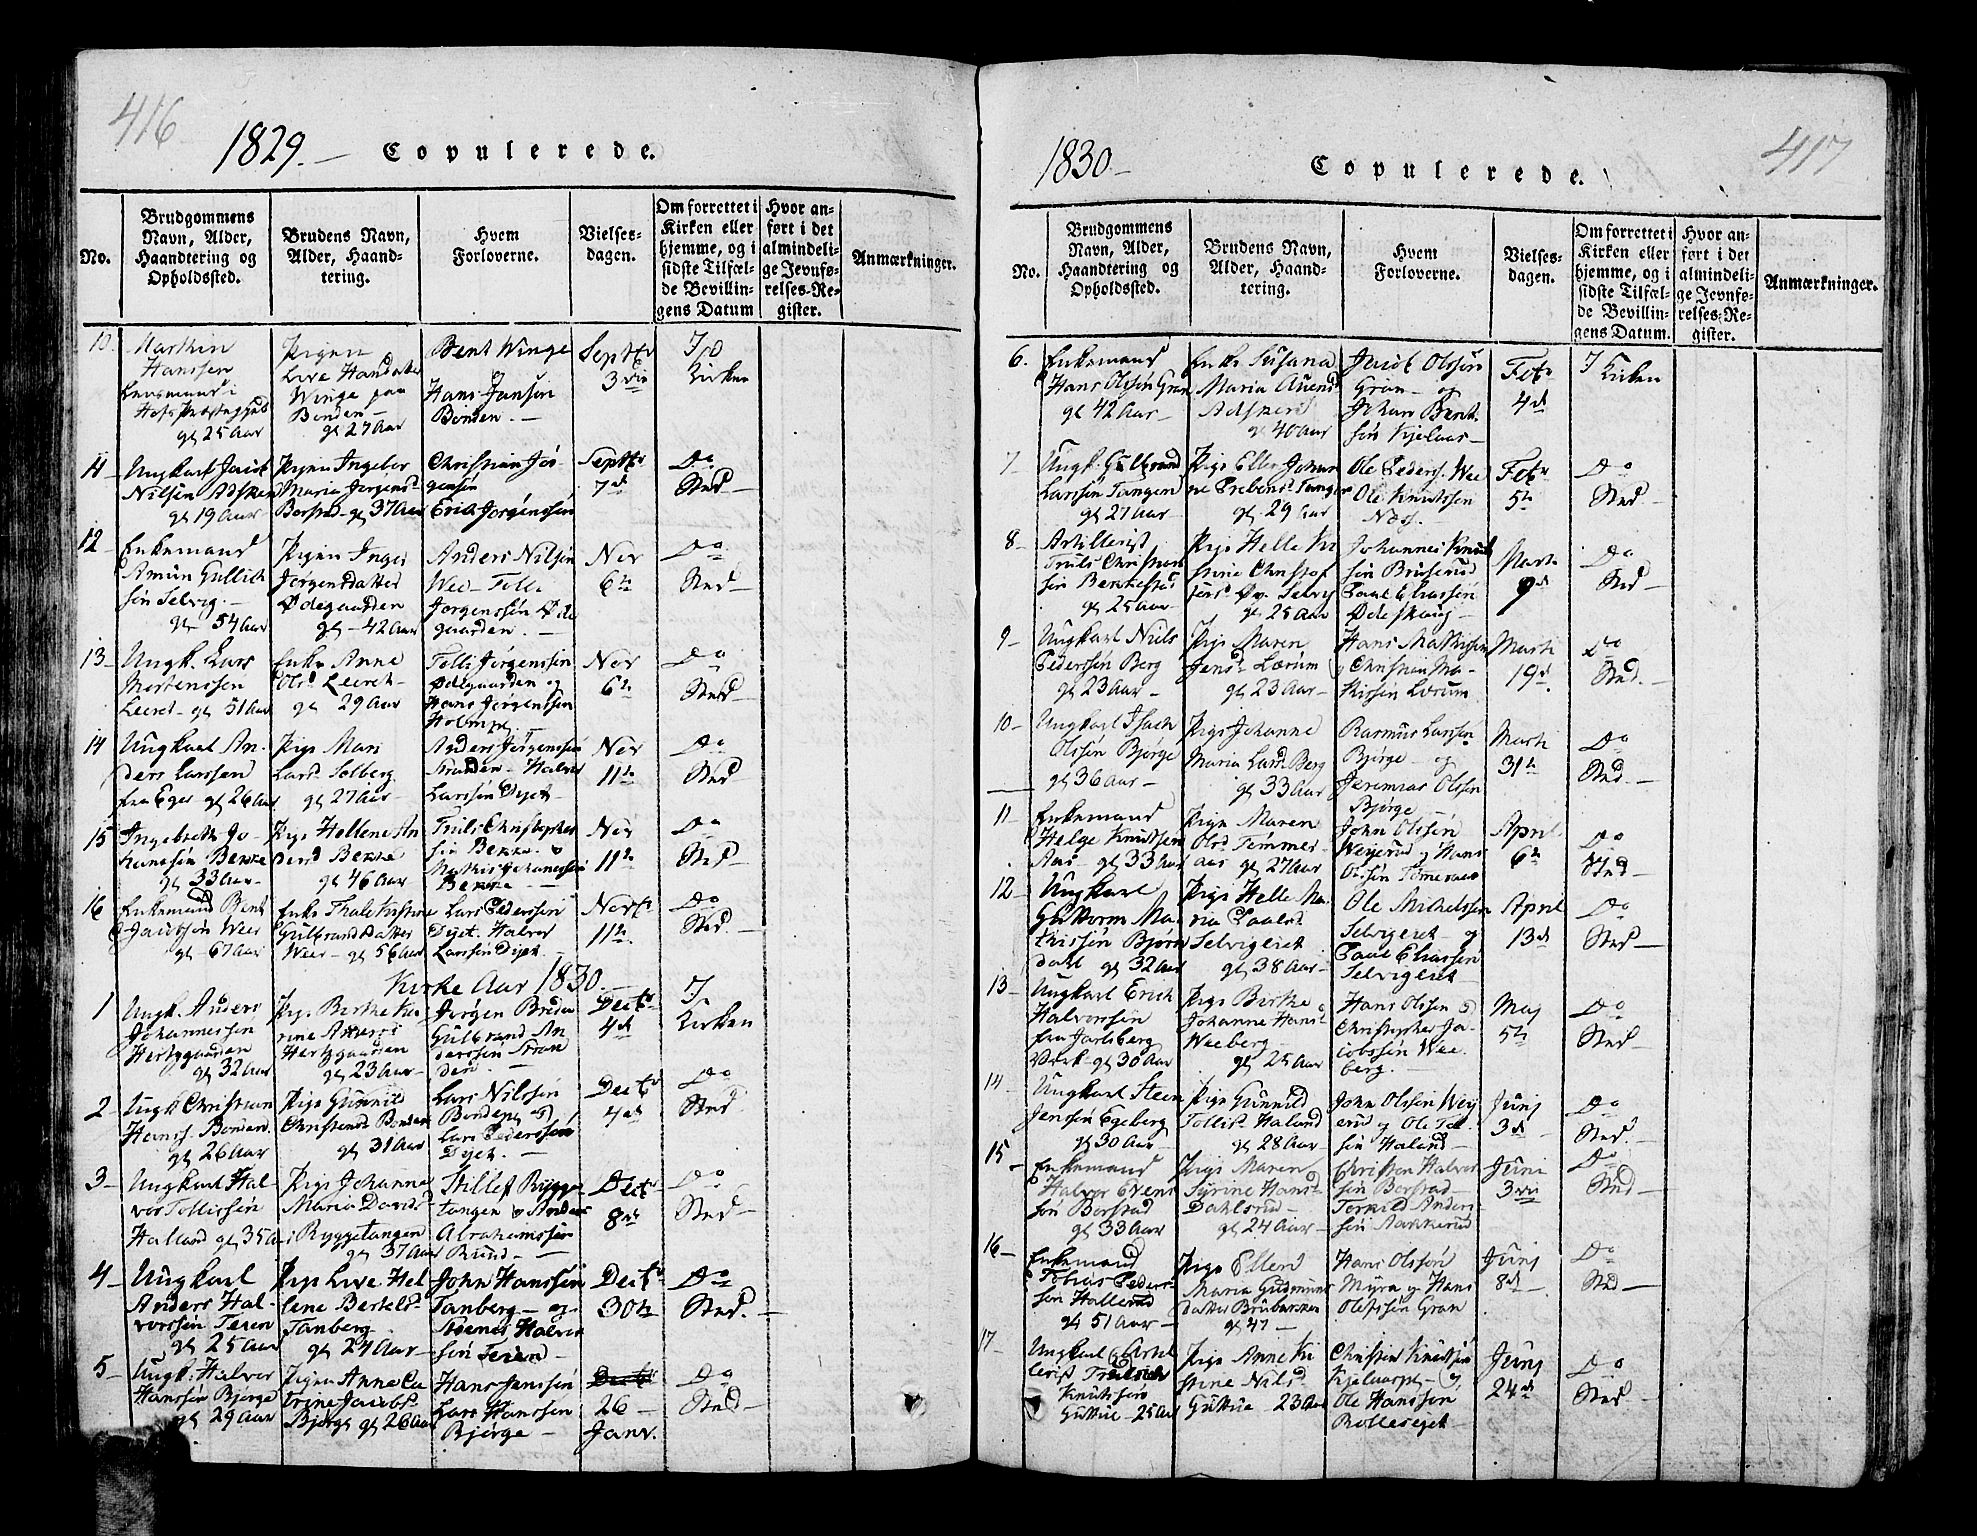 416
1829. — Copulerede.
No.
Brudgommens
Navn, Alder,
Haandtering og
Opholdssted.
Brudens Navn,
Alder, Haand-
tering.
Hvem
Forloverne.
Vielses-
dagen.
Om forrettet i
Kirken eller
hjemme, og i
sidste Tilfæl-
de Bevillin-
gens Datum
Hvor an-
ført i det
almindeli-
ge Jevnfø-
relses-Re-
gister.
Anmærkninger.
10.
Hanssen
gl 25 Aar
Pigen
Winge paa
Bonden —
gl 27 Aar
Bent Winge
Hans Jensen
Bonden. —
Septr
3
Kirken
11
Ungkarl Jacob
Nilsen
gl 19 Aar
Pigen Ingebor
Maria Jørgensd
gl 37 Aar
Christian Jør-
gensen
Erich Jørgenssen
Septr
7d
Do
Sted —
12
Enkemand
Amun Gullich
sen Selvig. —
gl 54 Aar
Pigen Inger
Jørgensdatter
Ødegaarden
gl — 42 Aar
Anders Nilsen
Wee — Tolli
Jorgenssen Øde
gaarden. —
Nov
6te
Do
Sted —
13
Ungk. Lars
Mortenssen
Leeret — gl 51 Aar
Enke Anne
Olsd Leeret —
gl 29 Aar
Tolli Jørgenssen
Ødegaarden og
Hans Jørgenssen
Nov
6te
Do
Sted —
14
Ungkarl An-
ders Larssen
fra Eger gl 26 Aar
Pige Mari
Larsd Solberg
gl 27 Aar —
Anders Jørgenssen
Stranden — Halvor
Larssen
Nov
11te
Do
Sted
15
Ingebreth Jo-
hanssen Bekke
gl 33 Aar —
Pige Hellene An
dersd Bekke
gl 46 Aar
Truls Christopher
sen Bekke
Mathis Johannessen
Bekke —
Nov
11te
Do
Sted —
16
Enkemand Bent
Jacobsen Wee
gl — 67 Aar
Enke Thale Kirstine
Gulbrandsdatter
Wee — gl 56 Aar
Lars Pederssen
Halvor
Larssen
11te
Do
Sted. —
Kirke Aar 1830. —
1
Ungk. Anders
Johannessen
Hertzgaarden
gl 32 Aar
Pige Berthe Ka-
rine
Hertzgaarden
gl 23 Aar —
Jørgen
Gulbrand An
derssen Stran
den. —
Decbr
4d
I
Kirken
2
Ungk Christian
Hanss. Bonden.
gl 26 Aar
Pige Gunnild
Christensd Bonden
gl 31 Aar
Lars Nilssen
Bonden og
Lars Pederssen
Decbr
4d
Do
Sted —
3 —
Ungkarl Hal-
vor Tollissen
Halland gl 35 Aar
Pige Johanne
Maria Davids
Ryggetangen
gl 37 Aar
Rygge
tangen
Abrahamssen
Decbr
8d
Do
Sted —
4 —
Ungkarl
Anders Hal-
vorssen Teien
gl 25 Aar
Pige Live Hel
lene Bertelsd
Tanberg
gl 24 Aar —
John Hanssen
Tanberg — og
Halvor
sen Teien —
Decbr
30te
Do
Sted. —
5
Ungk. Halvor
Hanssen Bjørge
gl 29 Aar
Pigen Anne Ca
trine Jacobs
Bjørge gl 26 Aar
Hans Jenssen
Lars Hanssen
Bjørge —
26 —
Janv.
Do
Sted —
417
1830 — Copulerede.
No.
Brudgommens
Navn, Alder,
Haandtering og
Opholdssted.
Brudens Navn,
Alder, Haand-
tering.
Hvem
Forloverne.
Vielses-
dagen.
Om forrettet i
Kirken eller
hjemme, og i
sidste Tilfæl-
de Bevillin-
gens Datum.
Hvor an-
ført i det
almindeli-
ge Jevnfø-
relses-Re-
gister.
Anmærkninger.
6.
Enkemand
Hans Olssen Gran
gl 42 Aar —
Enke Susana
Maria
gl 40 Aar
Jacob Olssen
Gran — og
Johan Bent
sen
Febr
4d
I Kirken
7 —
Ungk. Gulbrand
Larssen Tangen
gl 27 Aar —
Pige Ellen Johan
ne Prebensd Tangen
gl 29 Aar
Ole Pederss. Wee
Ole Knutssen
Næss. —
Febr
5te
Do
Sted —
8 —
Artillerist
Truls Christian
sen
gl 25 Aar —
Pige Helle Kri
stine Christof
gl 25 Aar
Johannes Knud
sen
Paul Eliassen
Ødeskaug —
Marti
9d
Do
Sted —
9 —
Ungkarl Niels
Pederssen Berg
gl 23 Aar —
Pige Maren
Jensd Lærum
gl 23 Aar —
Hans Mathissen
Christian Ma-
thissen Lærum
Marti
19d.
Do
Sted. —
10 —
Ungkarl Isach
Olssen Bjørge
gl 36 Aar —
Pige Johanne
Maria Larsd Berg
gl 33 Aar
Rasmus Larssen
Bjørge — og
Jeremias Olssen
Bjørge —
Marti
31te
Do
Sted. —
11 —
Enkemand
Helge Knudssen
Aas — gl 33 Aar
Pige Maren
Olsd Tømmer-
aas gl 27 Aar
John Olssen
Weyerud og Hans
Olssen
April
6te
Do
Sted —
12 —
Ungkarl
Guttorm Ma-
thissen Bjørn
dahl gl 32 Aar
Pige Helle Ma-
ria Paalsd
Selvigeret
gl 38 Aar —
Ole Michelssen
Selvigeret — og
Paul Eliassen
Selvigeret
April
13d
Do
Sted —
13 —
Ungkarl Erich
Halvorssen
fra Jarlsberg
Værk — gl 30 Aar
Pige Birthe
Johanne Hans
Weeberg —
gl 25 Aar
Hans Olssen og
Christopher Ja-
cobssen Wee
berg. —
Maj
5te
Do
Sted —
14 —
Ungkarl Steen
Jenssen Egeberg
gl 30 Aar —
Pige Gunnild
Tollisd Haland
gl 28 Aar
John Olssen Wey
erud og Ole Tol
sen Haland —
Junj
3d
Do
Sted. —
15 —
Enkemand
Halvor Evens
sen Borstad
gl 33 Aar
Pige Maren
Syrine Hansd
Dahlsrud —
gl 24 Aar —
Christen Halvor
sen Borstad —
Torkild Anders
sen Aakkerud
Juni
3
Do
Sted —
16 —
Enkemand
Tobias Peders
sen Hallerud
gl 51 Aar —
Pige Ellen
Maria Gudmunds
datter
gl 47 —
Hans Olssen
Myra og Hans
Olefssen Gran
Junj
8d —
Do
Sted —
17 —
Ungkarl og Artil
lerist
Knutssen
Guttue — 25 Aar
Pige Anne Ki
stine Nilsd
Guttue 23 Aar
Christen Knudssen
Ole Hanssen
Junj
24d
Do
Sted —